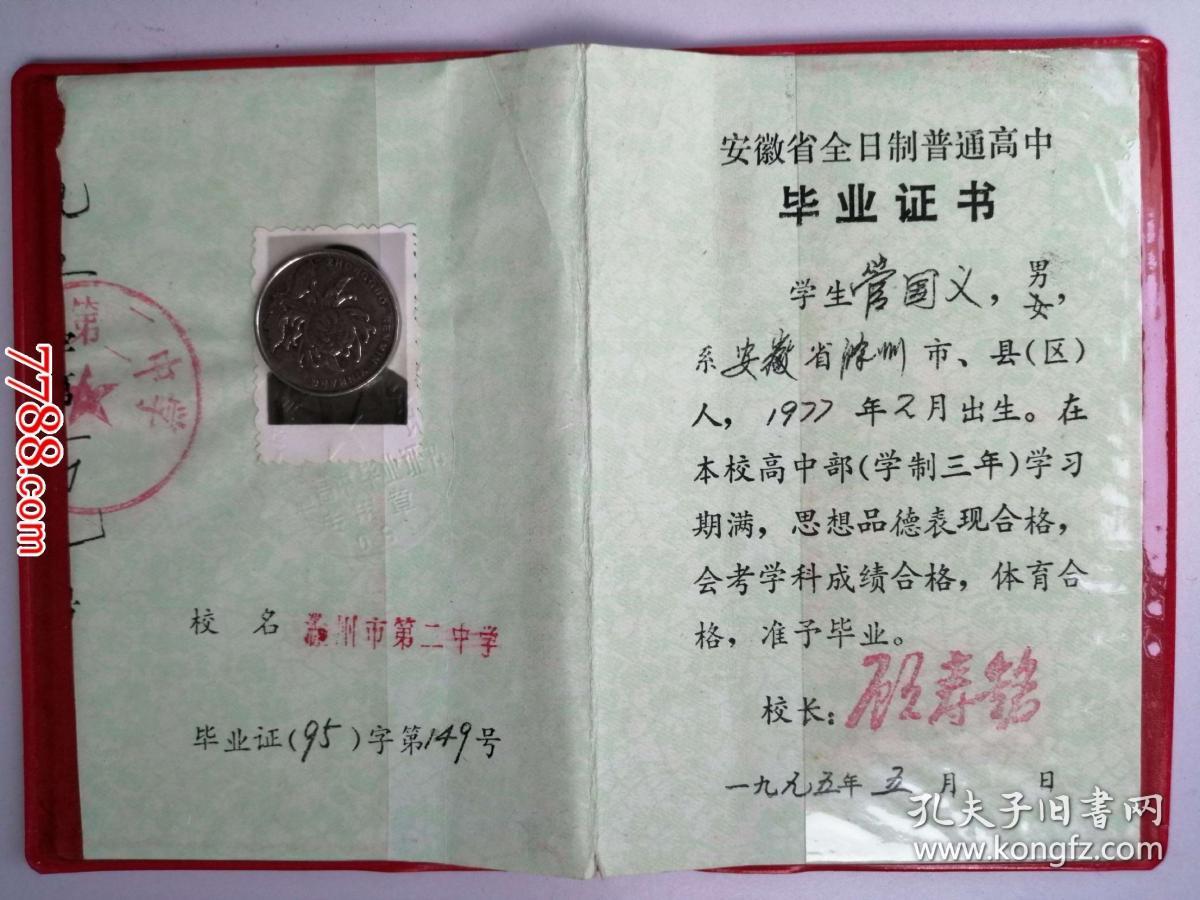 第
一
高
中
校 名 滁州市第二中学
毕业证(95)字第149号
安徽省全日制普通高中
毕业证书
学生管国义，男女，
系安徽省滁州市、县(区)
人，1977年2月出生。在
本校高中部(学制三年)学习
期满，思想品德表现合格，
会考学科成绩合格，体育合
格，准予毕业。
校长：顾寿铭
一九九五年 五 月 日
7788.com
孔夫子旧书网
www.kongfz.com